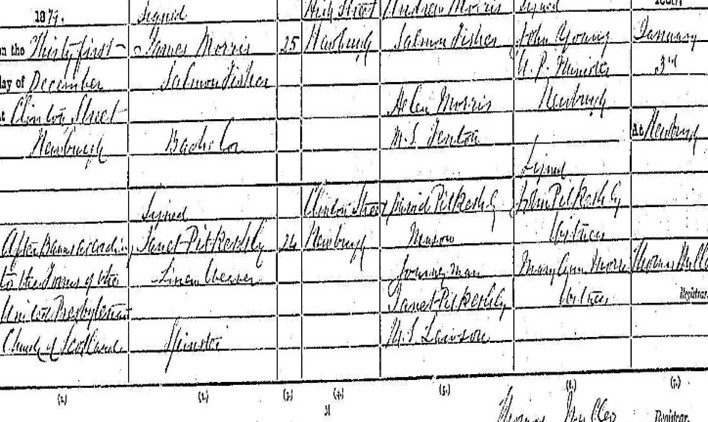 1879.
on the Thirty first
day of December
at Clinton Street
Newburgh
After Banns according
to the Forms of the
United Presbyterian
Church of Scotland
(1.)
Signed
James Morris
Salmon Fisher
Bachelor
Signed
Janet Pitkeathly
Linen Weaver
Spinster
(2.)
25
24
(3.)
High Street
Newburgh
Clinton Street
Newburgh
(4.)
Andrew Morris
Salmon Fisher
Helen Morris
M.S. Fenton
David Pitkeathly
Mason
Journeyman
Janet Pitkeathly
M.S. Lawson
(5.)
Signed
John Young
U. P. Minister
Newburgh
Signed
John Pitkeathly
Witness
Mary Lynn
Witness
(6.)
January
3rd
At Newburgh
Thomas
Registrar.
(7.)
Thomas
Registrar.